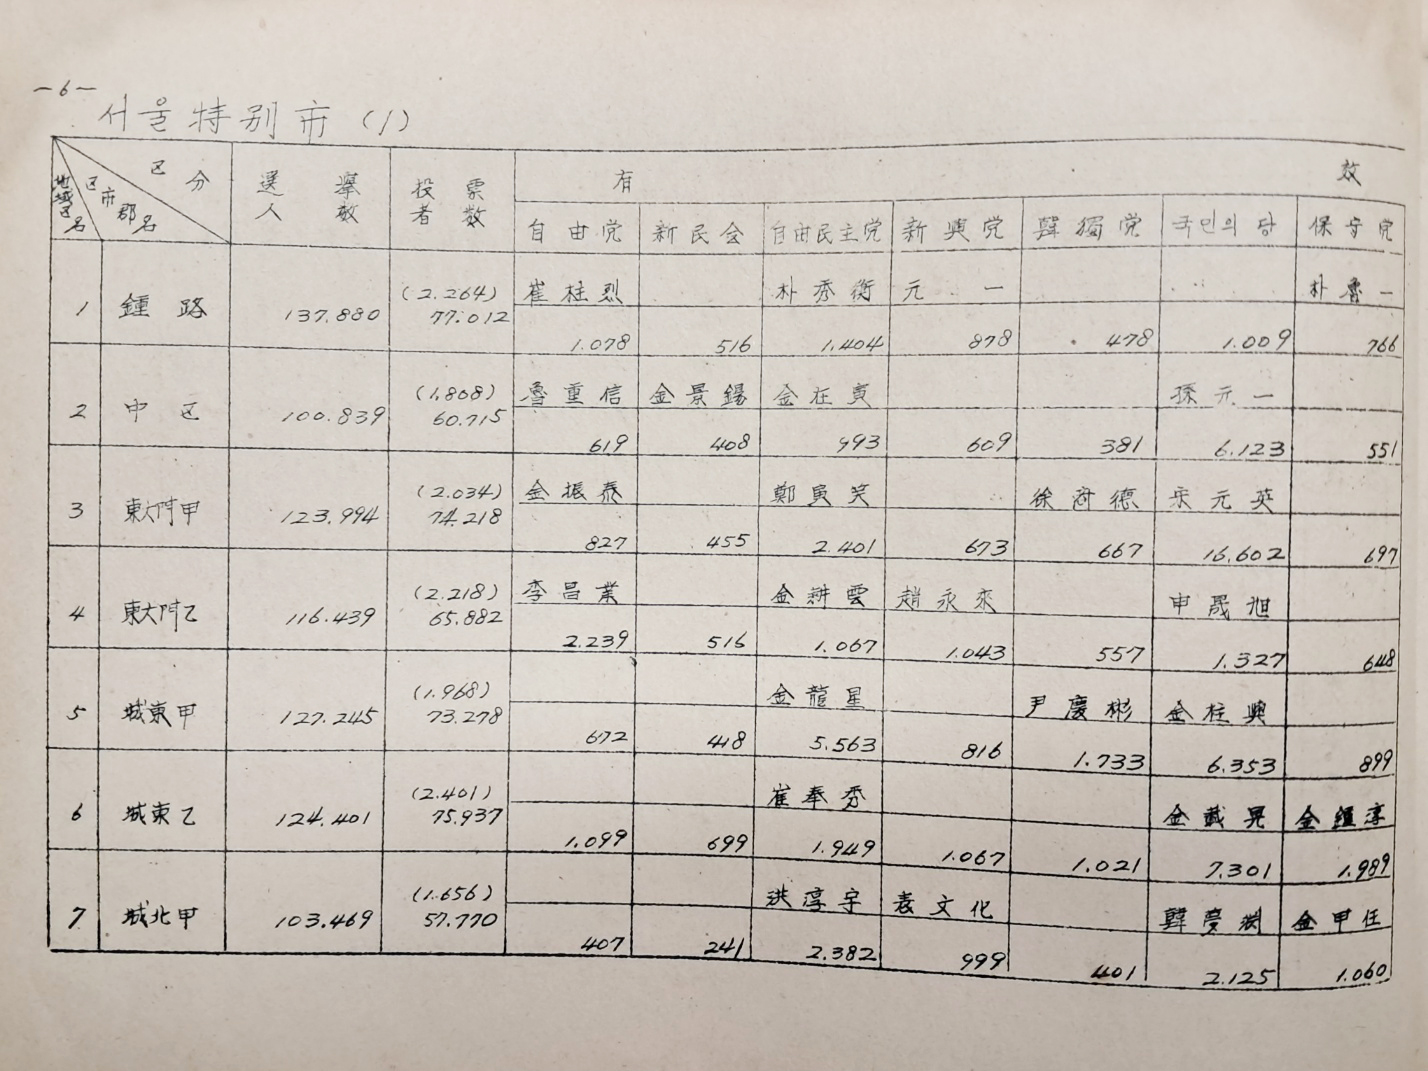 －6－
서울特別市 (1)
区分 選擧 投票 有 效
地域区名 区市郡名 人数 者数 自由党 新民会 自由民主党 新興党 韓獨党 국민의당 保守党
(2.264) 崔柱烈 朴秀衡 元一 朴魯一
1 鍾路 137.880 77.012
1.078 516 1.404 878 478 1.009 766
(1.808) 魯重信 金景錫 金在寅 孫元一
2 中区 100.839 60.715
619 408 993 609 381 6.123 551
(2.034) 金振泰 鄭寅笑 徐商德 宋元英
3 東大門甲 123.994 74.218
827 455 2.401 673 667 16.602 697
(2.218) 李昌業 金耕雲 趙永來 申晟旭
4 東大門乙 116.439 65.882
2.239 516 1.067 1.043 557 1.327 648
(1.968) 金龍星 尹慶彬 金柱興
5 城東甲 127.245 73.278
672 418 5.563 816 1.733 6.353 899
(2.401) 崔奉秀 金戴晃
6 城東乙 124.401 75.937
1.099 699 1.949 1.067 1.021 7.301 1.989
(1.656) 洪淳宇 袁文化 韓夢淵 金甲任
7 城北甲 103.469 57.770
407 241 2.382 999 401 2.125 1.060